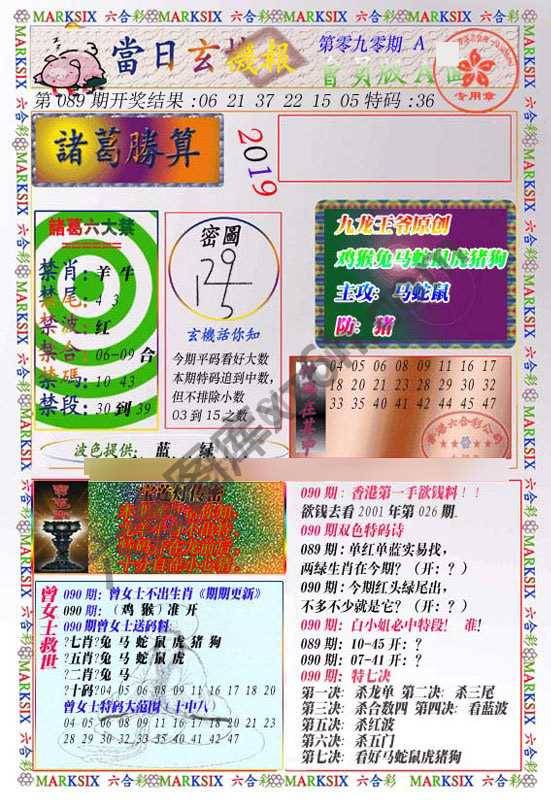 MARKSIX 六合彩 MARKSIX 六合彩 MARKSIX 六合彩 MARKSIX 六合彩
當日玄機報
第零九零期 A
會員版A世
专用章
第 089 期开奖结果:06 21 37 22 15 05 特码:36
諸葛勝算
2019
諸葛六大禁
禁肖:羊 牛
禁尾:4 3
禁波:红
禁合:06-09 合
禁碼:10 43
禁段:30 到 39
密圖
玄機話你知
今期平码看好大数
本期特码追到中数,
但不排除小数
03 到 15 之数
九龙王爷原创
鸡猴兔马蛇鼠虎猪狗
主攻: 马蛇鼠
防: 猪
04 05 06 08 09 11 16 17
18 20 21 23 28 29 30 32
33 35 40 41 42 44 45 47
波色提供: 蓝 绿
曾女士救世
090 期: 曾女士不出生肖《期期更新》
090 期: (鸡 猴) 准 开
090 期曾女士送码料:
?七肖?兔 马 蛇 鼠 虎 猪 狗
?五肖?兔 马 蛇 鼠 虎
?二肖?兔 马
?十码?04 05 06 08 09 11 16 17 18 20
曾女士特码大范围 (十中八)
04 05 06 08 09 11 16 17 18 20 21 23
28 29 30 32 33 35 40 41 42 47
090 期: 香港第一手欲钱料!!
欲钱去看 2001 年第 026 期.
090 期双色特码诗
089 期:单红单蓝实易找,
两绿生肖在今期? (开: ? )
090 期:今期红头绿尾出,
不多不少就是它? (开: ? )
090 期: 白小姐必中特段! 准!
089 期: 10-45 开: ?
090 期: 07-41 开: ?
090 期: 特七决
第一决: 杀龙单 第二决: 杀三尾
第三决: 杀合数四 第四决: 看蓝波
第五决: 杀红波
第六决: 杀五门
第七决: 看好马蛇鼠虎猪狗
MARKSIX 六合彩 MARKSIX 六合彩 MARKSIX 六合彩 MARKSIX 六合彩